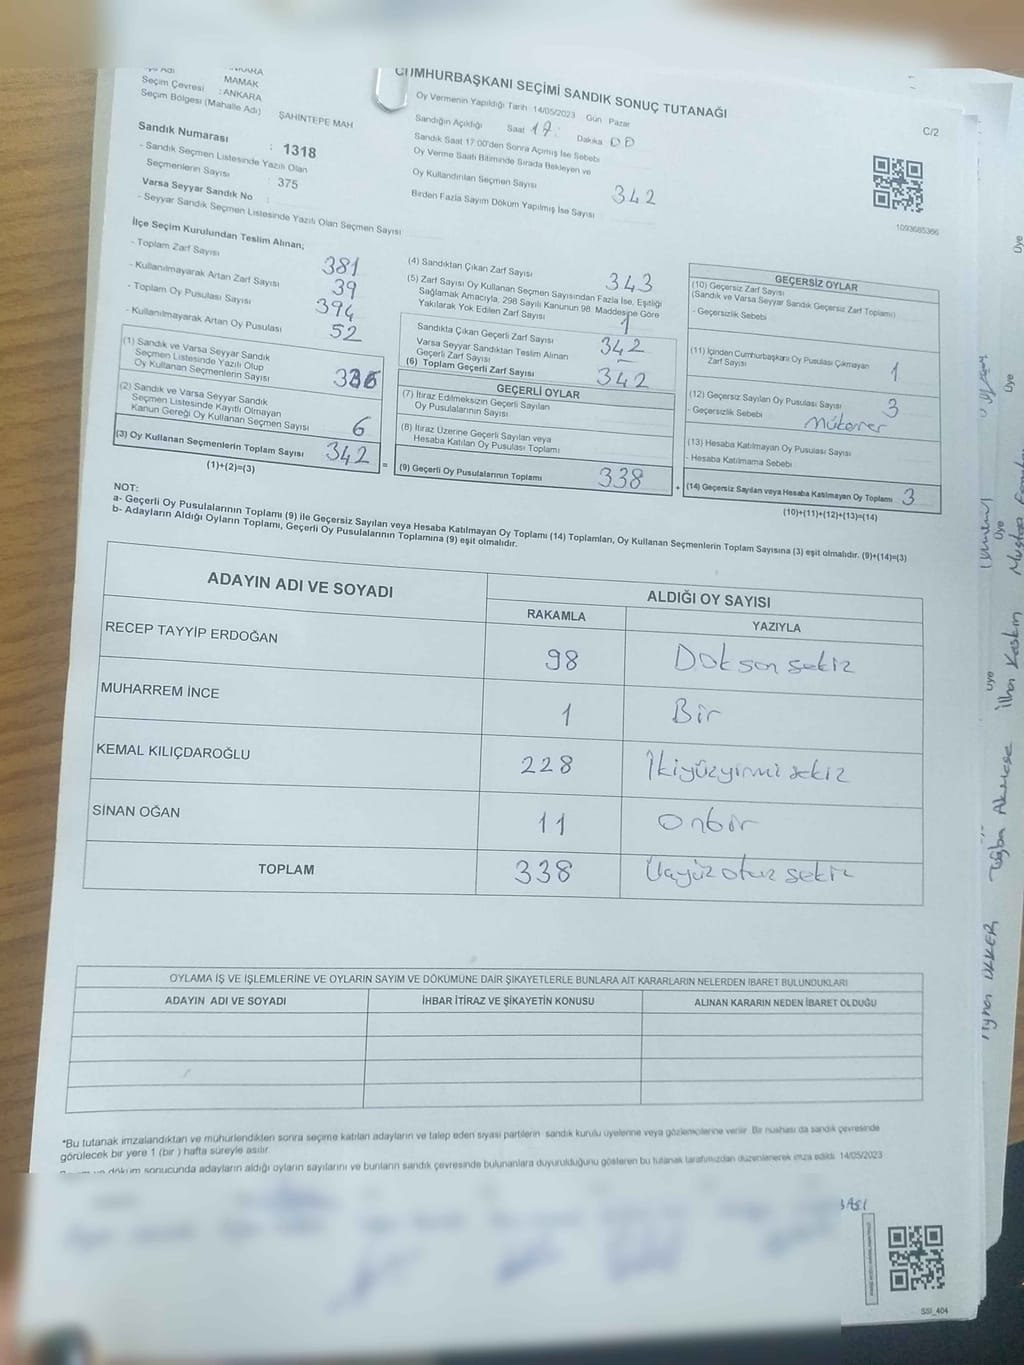 ANKARA
MAMAK
Seçim Çevresi : ANKARA
Seçim Bölgesi (Mahalle Adı) ŞAHİNTEPE MAH
Sandık Numarası : 1318
- Sandık Seçmen Listesinde Yazılı Olan
Seçmenlerin Sayısı : 375
Varsa Seyyar Sandık No :
- Seyyar Sandık Seçmen Listesinde Yazılı Olan Seçmen Sayısı
CUMHURBAŞKANI SEÇİMİ SANDIK SONUÇ TUTANAĞI
C/2
Oy Vermenin Yapıldığı Tarih 14/05/2023 Gün Pazar
Sandığın Açıldığı Saat 17: Dakika 00
Sandık Saat 17:00'den Sonra Açımış İse Sebebi
Oy Verme Saati Bitiminde Sırada Bekleyen ve
Oy Kullandırılan Seçmen Sayısı 342
Birden Fazla Sayım Döküm Yapılmış İse Sayısı
1093685366
İlçe Seçim Kurulundan Teslim Alınan;
- Toplam Zarf Sayısı 381
- Kullanılmayarak Artan Zarf Sayısı 39
- Toplam Oy Pusulası Sayısı 394
- Kullanılmayarak Artan Oy Pusulası 52
(1) Sandık ve Varsa Seyyar Sandık
Seçmen Listesinde Yazılı Olup
Oy Kullanan Seçmenlerin Sayısı 336
(2) Sandık ve Varsa Seyyar Sandık
Seçmen Listesinde Kayıtlı Olmayan
Kanun Gereği Oy Kullanan Seçmen Sayısı 6
(3) Oy Kullanan Seçmenlerin Toplam Sayısı 342 =
(1)+(2)=(3)
(4) Sandıktan Çıkan Zarf Sayısı 343
(5) Zarf Sayısı Oy Kullanan Seçmen Sayısından Fazla İse, Eşitliği
Sağlamak Amacıyla, 298 Sayılı Kanunun 98. Maddesine Göre
Yakılarak Yok Edilen Zarf Sayısı 1
Sandıkta Çıkan Geçerli Zarf Sayısı 342
Varsa Seyyar Sandıktan Teslim Alınan
Geçerli Zarf Sayısı -
(6) Toplam Geçerli Zarf Sayısı 342
GEÇERLİ OYLAR
(7) İtiraz Edilmeksizin Geçerli Sayılan
Oy Pusulalarının Sayısı
(8) İtiraz Üzerine Geçerli Sayılan veya
Hesaba Katılan Oy Pusulası Toplamı
(9) Geçerli Oy Pusulalarının Toplamı 338 +
GEÇERSİZ OYLAR
(10) Geçersiz Zarf Sayısı
(Sandık ve Varsa Seyyar Sandık Geçersiz Zarf Toplamı)
- Geçersizlik Sebebi
(11) İçinden Cumhurbaşkanı Oy Pusulası Çıkmayan
Zarf Sayısı 1
(12) Geçersiz Sayılan Oy Pusulası Sayısı 3
- Geçersizlik Sebebi Mükerrer
(13) Hesaba Katılmayan Oy Pusulası Sayısı
- Hesaba Katılmama Sebebi
(14) Geçersiz Sayılan veya Hesaba Katılmayan Oy Toplamı 3
(10)+(11)+(12)+(13)=(14)
NOT:
a- Geçerli Oy Pusulalarının Toplamı (9) ile Geçersiz Sayılan veya Hesaba Katılmayan Oy Toplamı (14) Toplamları, Oy Kullanan Seçmenlerin Toplam Sayısına (3) eşit olmalıdır. (9)+(14)=(3)
b- Adayların Aldığı Oyların Toplamı, Geçerli Oy Pusulalarının Toplamına (9) eşit olmalıdır.
ADAYIN ADI VE SOYADI
ALDIĞI OY SAYISI
RAKAMLA YAZIYLA
RECEP TAYYİP ERDOĞAN 98 Doksan sekiz
MUHARREM İNCE 1 Bir
KEMAL KILIÇDAROĞLU 228 İkiyüzyirmi sekiz
SİNAN OĞAN 11 Onbir
TOPLAM 338 Üçyüz otuz sekiz
OYLAMA İŞ VE İŞLEMLERİNE VE OYLARIN SAYIM VE DÖKÜMÜNE DAİR ŞİKAYETLERLE BUNLARA AİT KARARLARIN NELERDEN İBARET BULUNDUKLARI
ADAYIN ADI VE SOYADI İHBAR İTİRAZ VE ŞİKAYETİN KONUSU ALINAN KARARIN NEDEN İBARET OLDUĞU
*Bu tutanak imzalandıktan ve mühürlendikten sonra seçime katılan adayların ve talep eden siyasi partilerin sandık kurulu üyelerine veya gözlemcilerine verilir. Bir nüshası da sandık çevresinde
görülecek bir yere 1 (bir ) hafta süreyle asılır.
döküm sonucunda adayların aldığı oyların sayılarını ve bunların sandık çevresinde bulunanlara duyurulduğunu gösteren bu tutanak tarafımızdan düzenlenerek imza edildi. 14/05/2023
SSİ_404
Üye
Üye
Üye
Üye
İlhan Kaskın
Tuğba Akmeşe